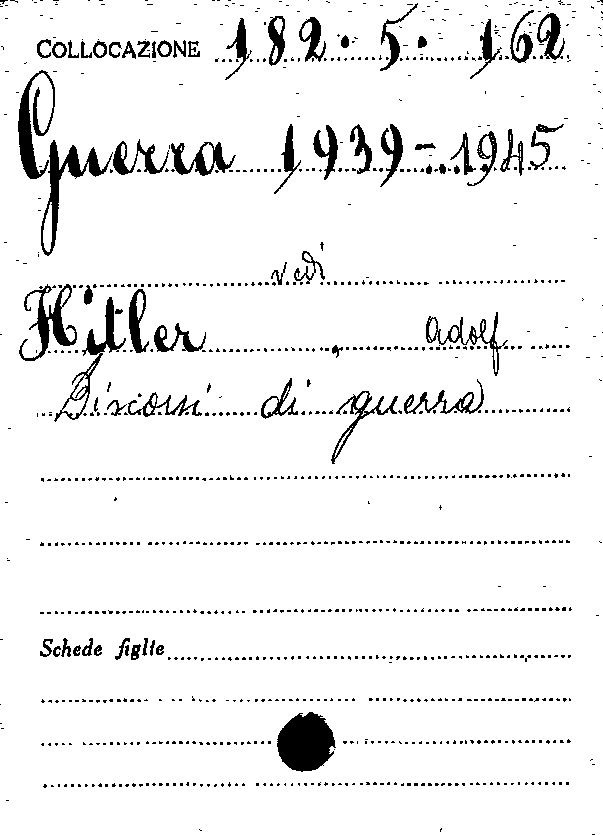 COLLOCAZIONE 182. 5. 162
Guerra 1939-1945
vedi
Hitler, Adolf
Discorsi di guerra
Schede figlie